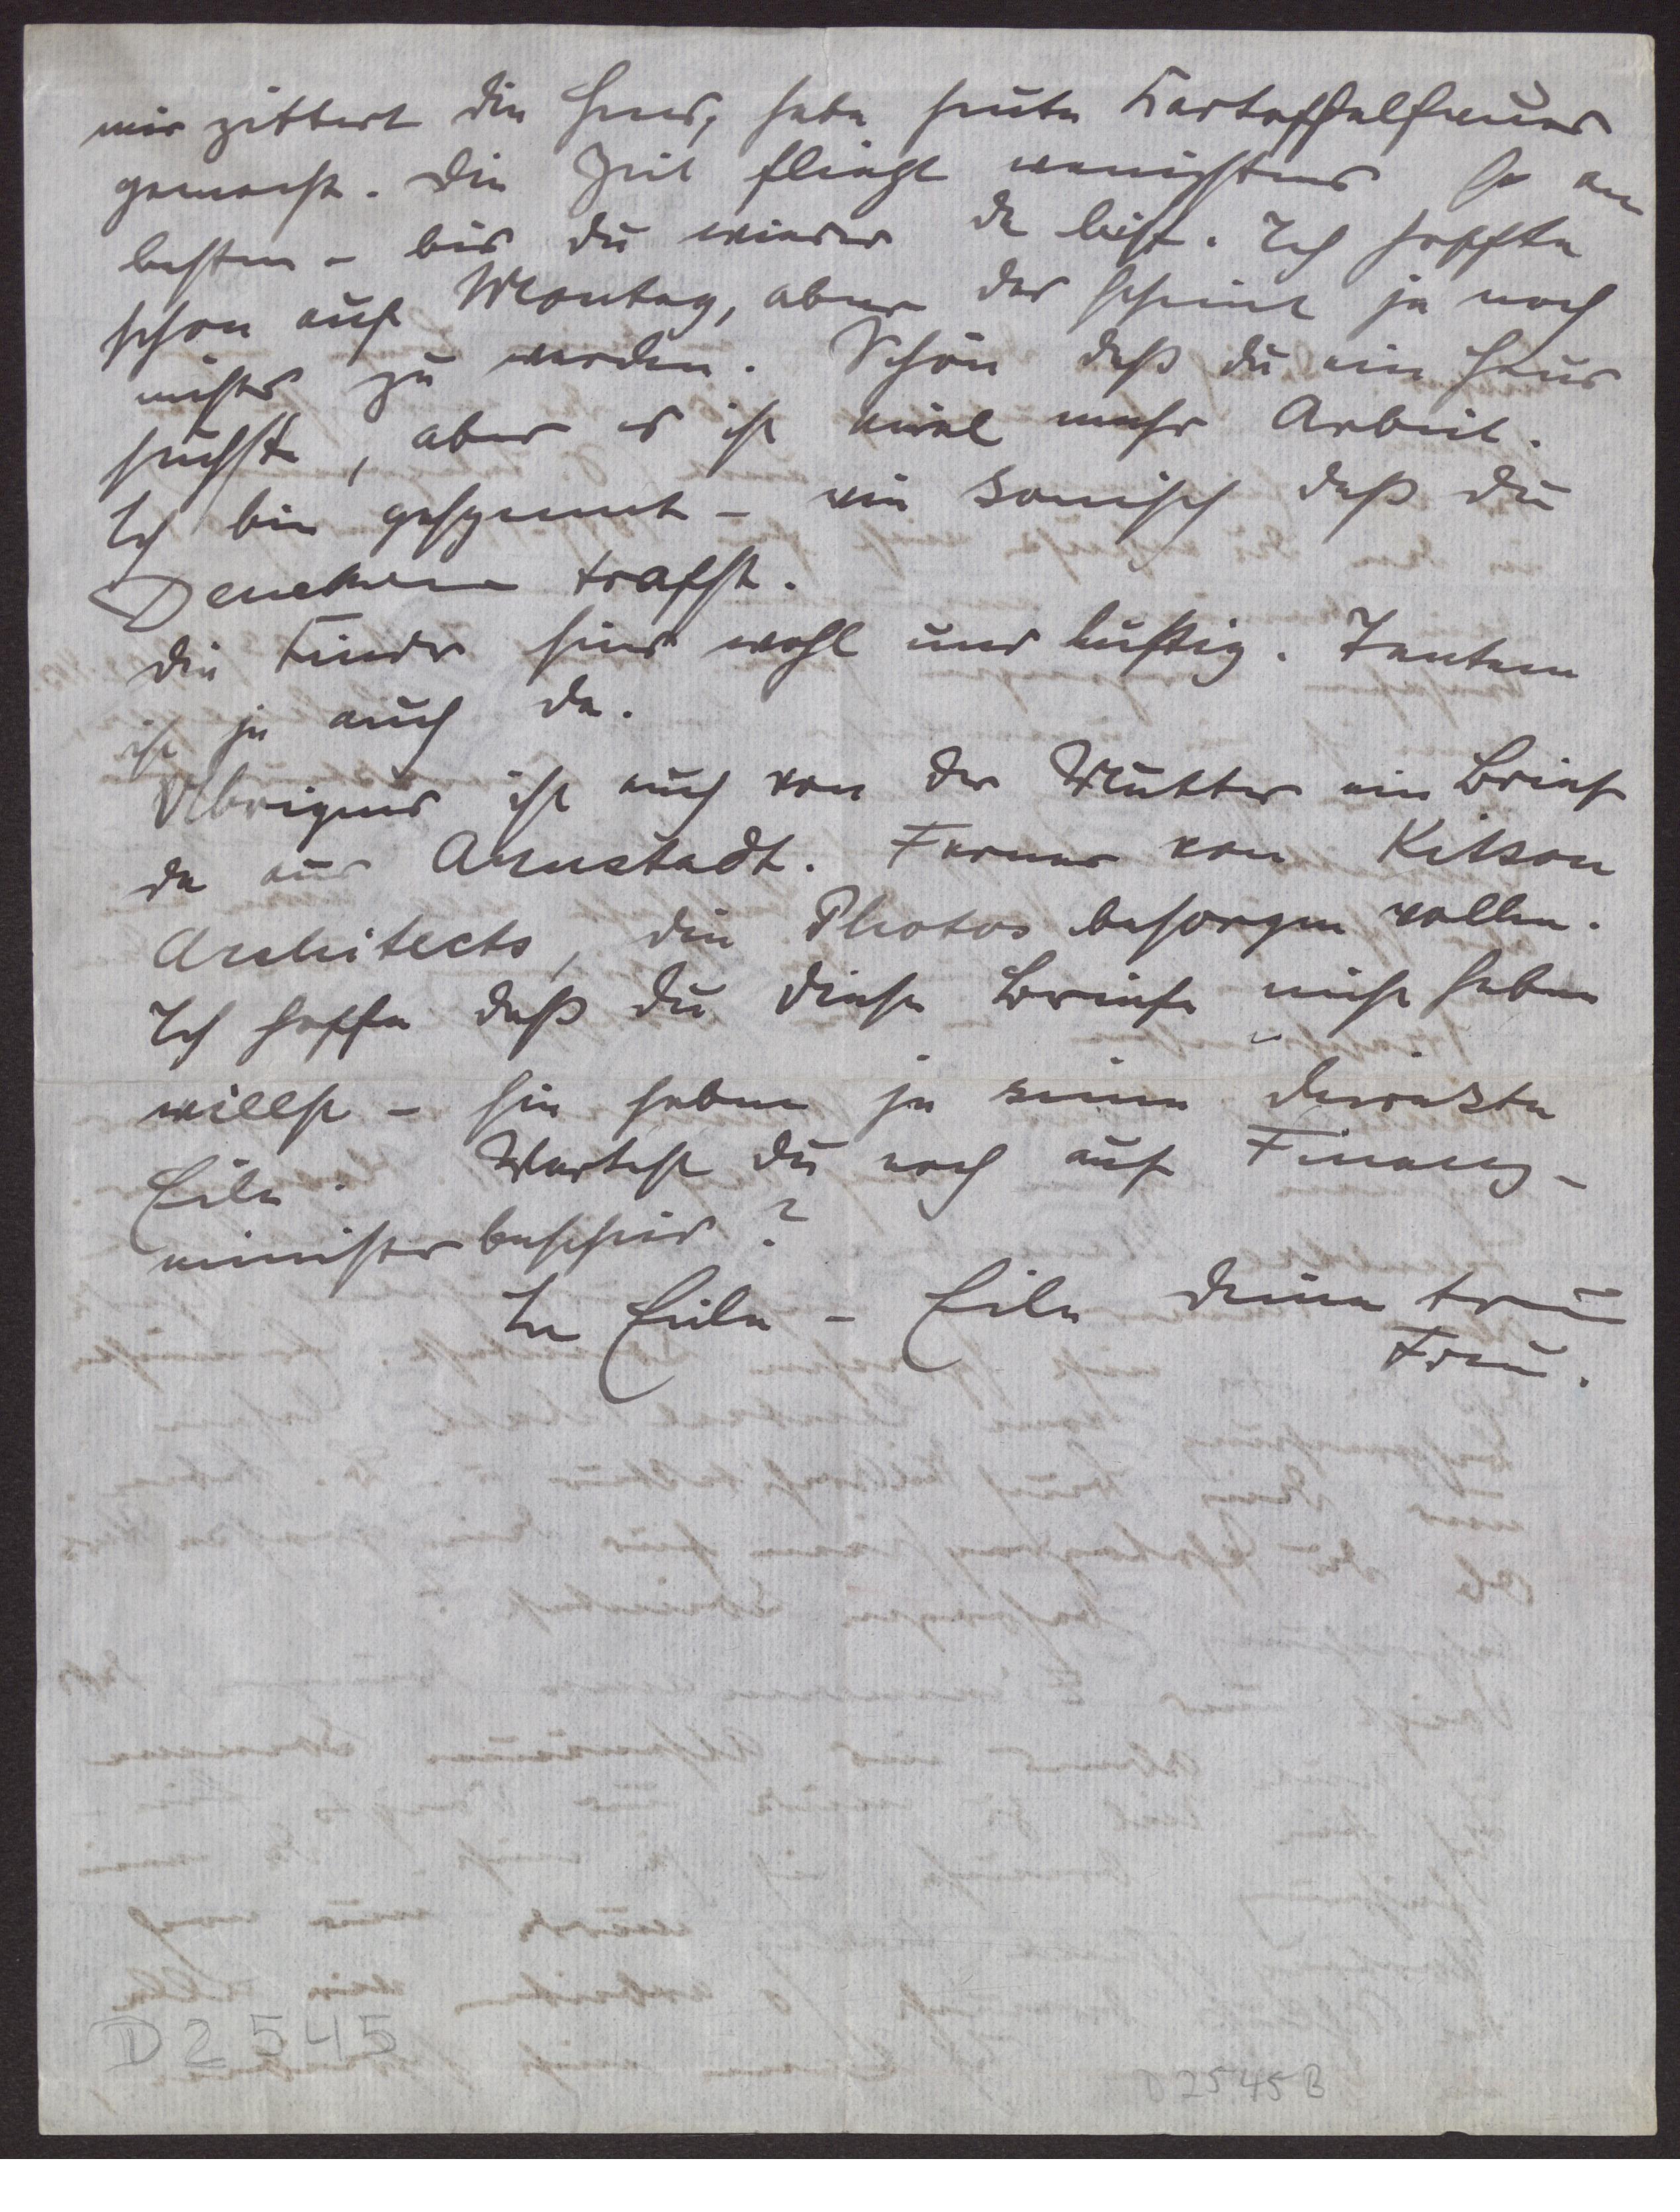 mir zittert die Hand, habe heute Kartoffelfeuer
gemacht. Die Zeit fliegt wenigstens so am
besten – bis du wieder da bist. Ich hoffte
schon auf Montag, aber das scheint ja noch
nichts zu werden. Schön daß du ein Haus
suchst, aber es ist viel mehr Arbeit.
Ich bin gespannt – wie komisch daß du
trafst.
Die Kinder sind wohl und lustig. Tantem
ist ja auch da.
Übrigens ist auch von der Mutter ein Brief
da aus Arnstadt. Ferner von Kitson
Architects, die Photos besorgen wollen.
Ich hoffe daß du diese Briefe nicht haben
willst – sie haben ja keine direkte
Eile. Wartest du noch auf Finanz-
ministerbescheid?
In Eile – Eile deine treue
Frau.
D 2545
D 2545 B